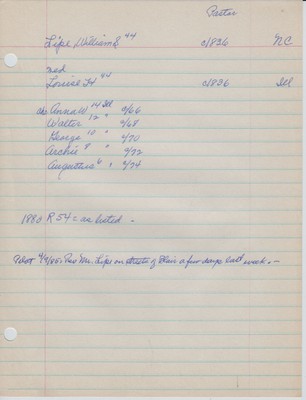 Pastor
Lipe Williams 44 c/836 NC
md
Louise H 44 c/836 Ill
ch Anna W 14 Ill c/66
Walter 12 " c/68
George 10 " c/70
Archie 8 " c/72
Augustus 6 " c/74
1880 R 54 = as listed -
4/9/85: Rev Mr. Lipe on streets of Blair a few days last week. -